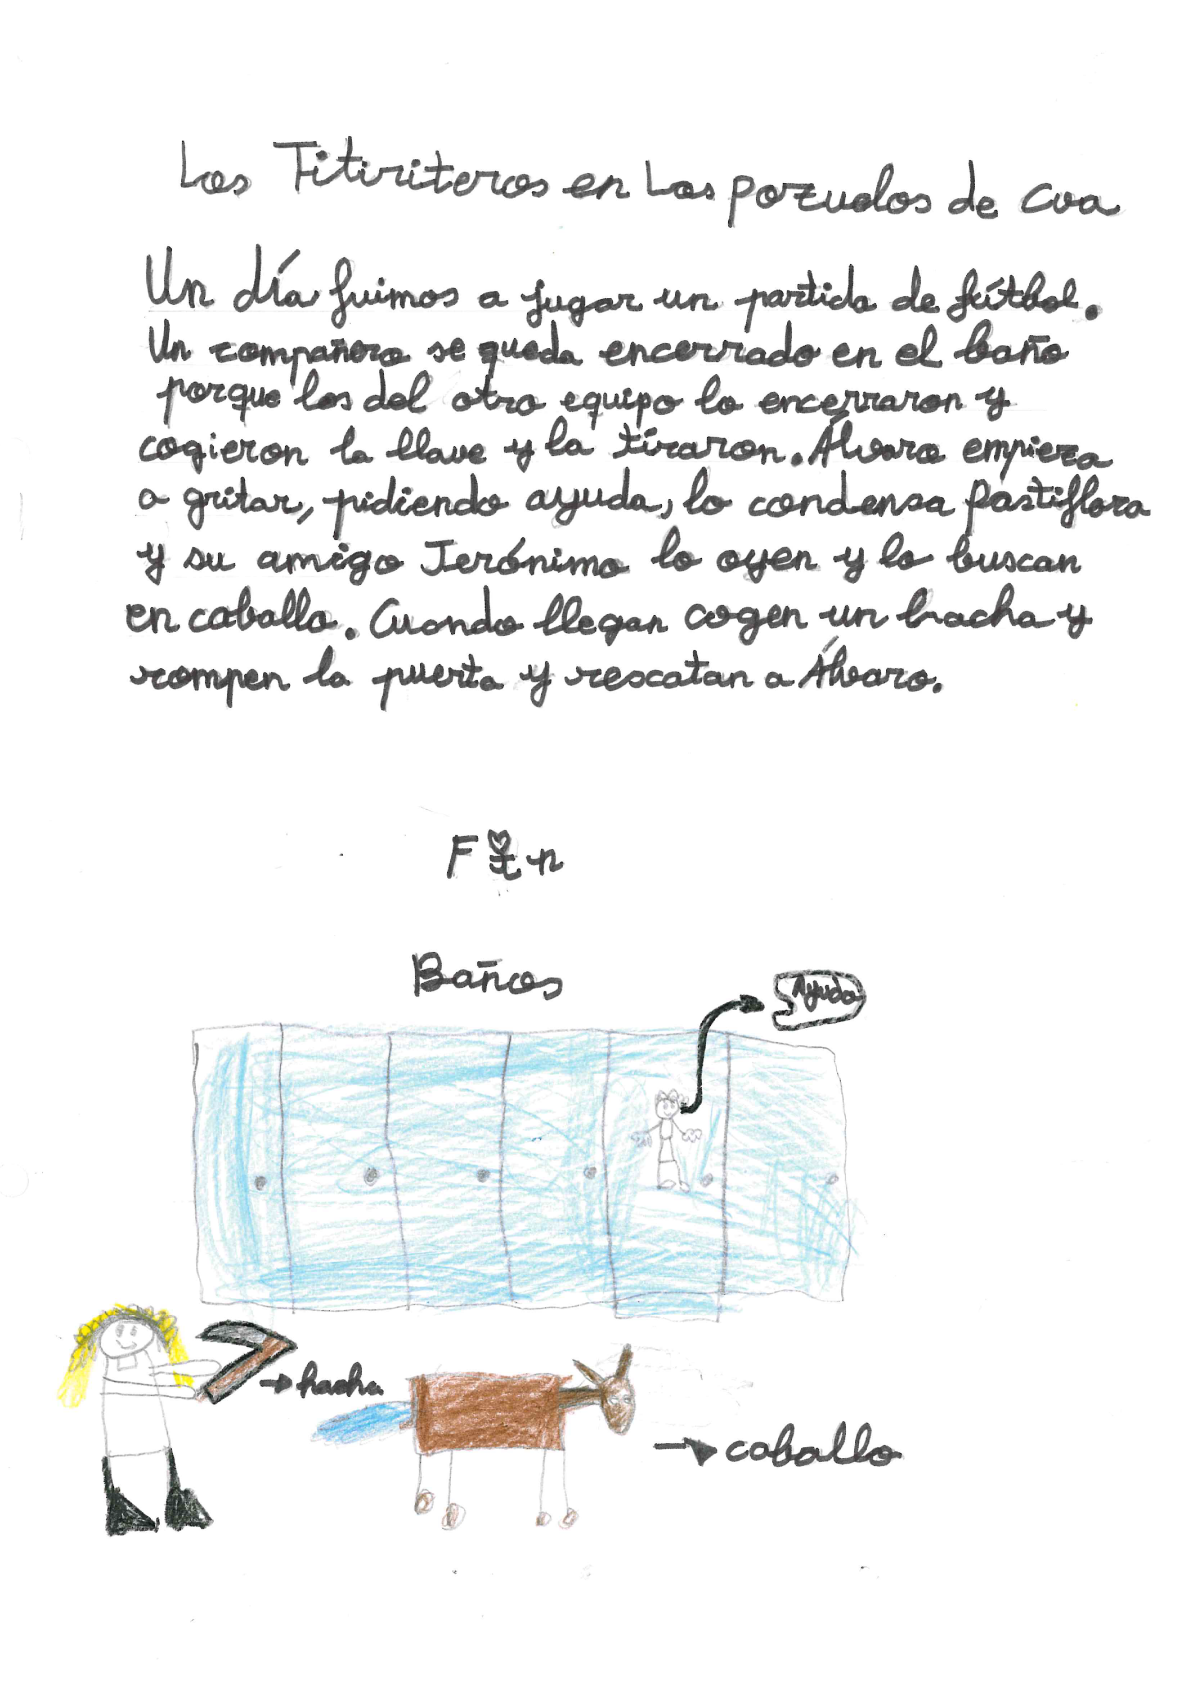 Los Titiriteros en Los pozuelos de Cva
Un día fuimos a jugar un partido de fútbol.
Un compañero se queda encerrado en el baño
porque los del otro equipo lo encerraron y
cogieron la llave y la tiraron. Álvaro empieza
a gritar, pidiendo ayuda, lo condensa Pastiflora
y su amigo Jerónimo lo oyen y lo buscan
en caballo. Cuando llegan cogen un hacha y
rompen la puerta y rescatan a Álvaro.
Fin
Baños
Ayuda
hacha
caballo